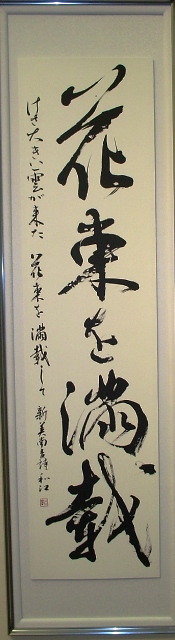 花束を満載
けさ大きい雲が来た 花束を満載して 新美南吉詩 和江